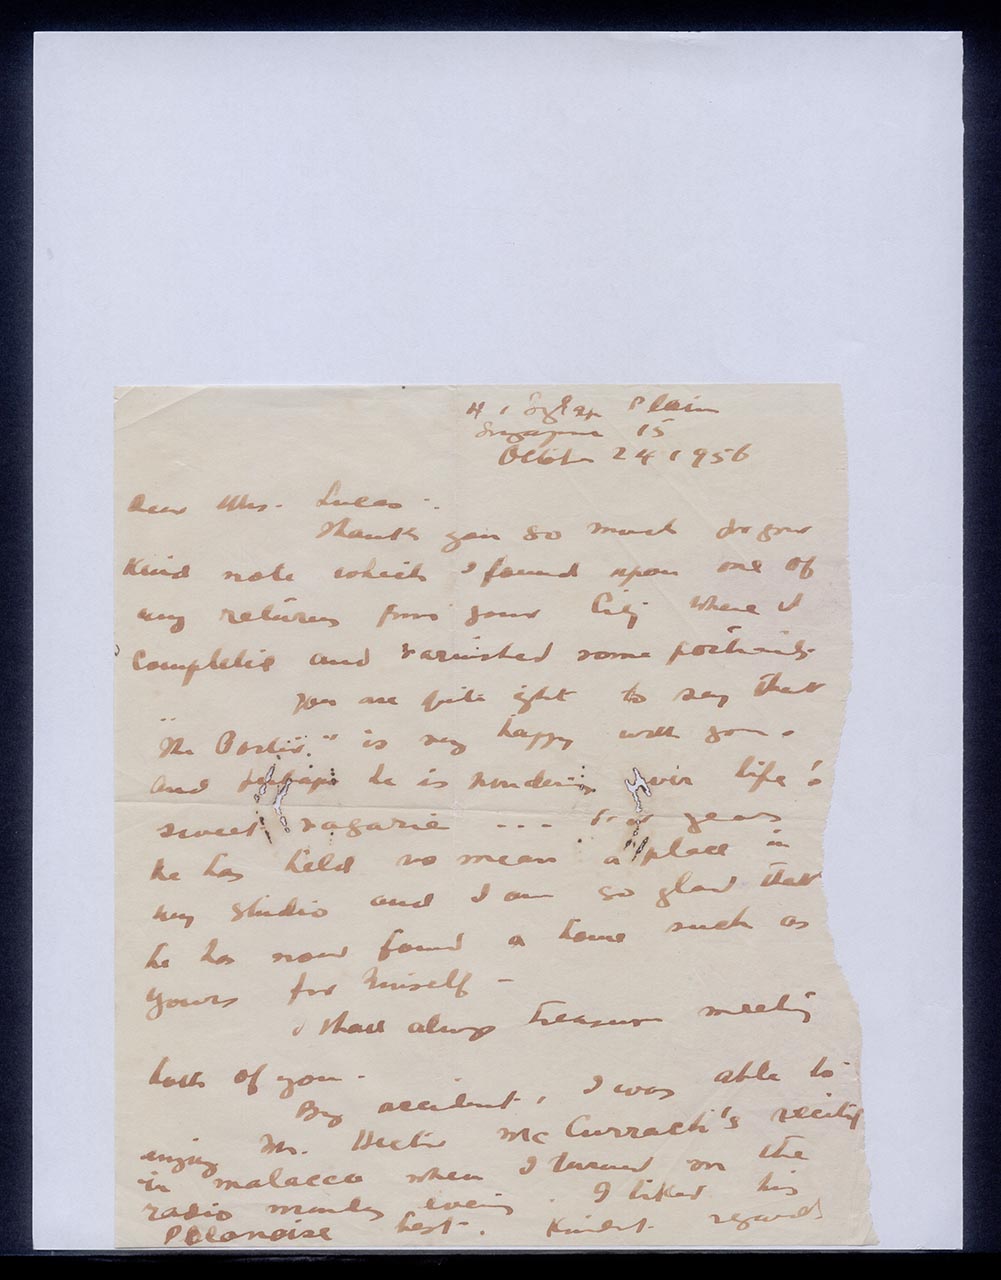 41 Siglap Plain
Singapore 15
October 24 1956
Dear Mrs. Lucas -
Thank you so much for your
kind note which I found upon one of
my returns from your City where I
completed and varnished some portraits.
You are quite right to say that
"The Poet" is very happy with you.
And perhaps he is wondering over life!
sweet vagarie ... For years
he has held no mean a place in
my studio and I am so glad that
he has now found a home such as
yours for himself -
I shall always treasure meeting
both of you.
By accident, I was able to
enjoy Mr. Hector McCurrach's recital
in Malacca when I turned on the
radio Monday evening. I liked his
Polonaise best. Kindest regards